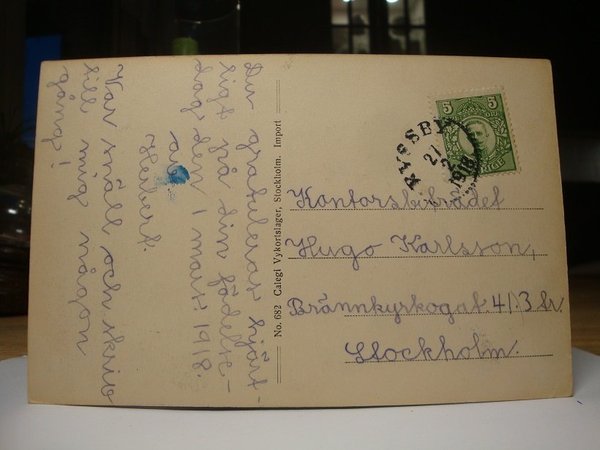 Du gratuleras hjärt-
ligt på din födelse-
dag den 1 mars 1918.
av
Var snäll och skriv
till mig någon
gång!
No. 682 Calegi Vykortslager, Stockholm. Import
5 5
RYSSBY
21
2
1918
Kontorsbiträdet
Hugo Karlsson,
Brännkyrkogat. 4/3 tr.
Stockholm.